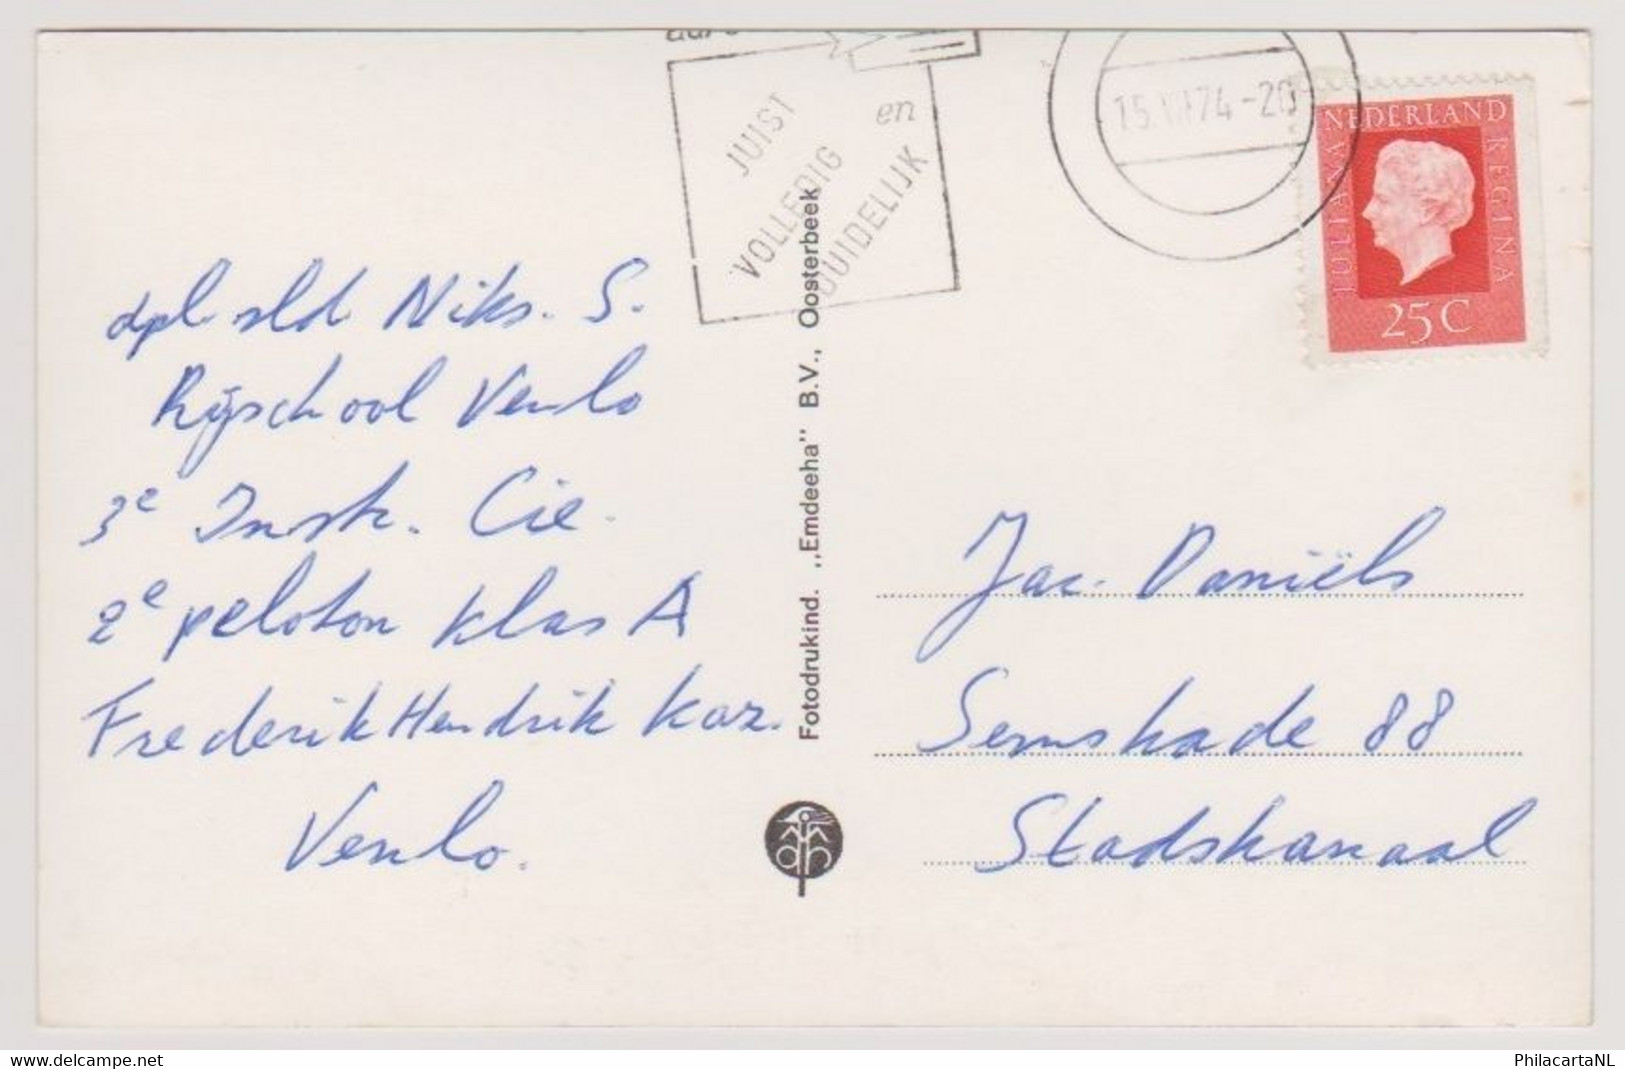 JUIST
VOLLEDIG
en
DUIDELIJK
74-20
NEDERLAND
JULIANA
REGINA
25C
dpl. sld Niks. S.
Rijschool Venlo
3e Instr. Cie.
2e peloton klas A
Frederik Hendrik Kaz.
Venlo.
Fotodrukind. „Emdeeha" B.V., Oosterbeek
Jac. Daniëls
Semskade 88
Stadskanaal
PhilacartaNL
www.delcampe.net